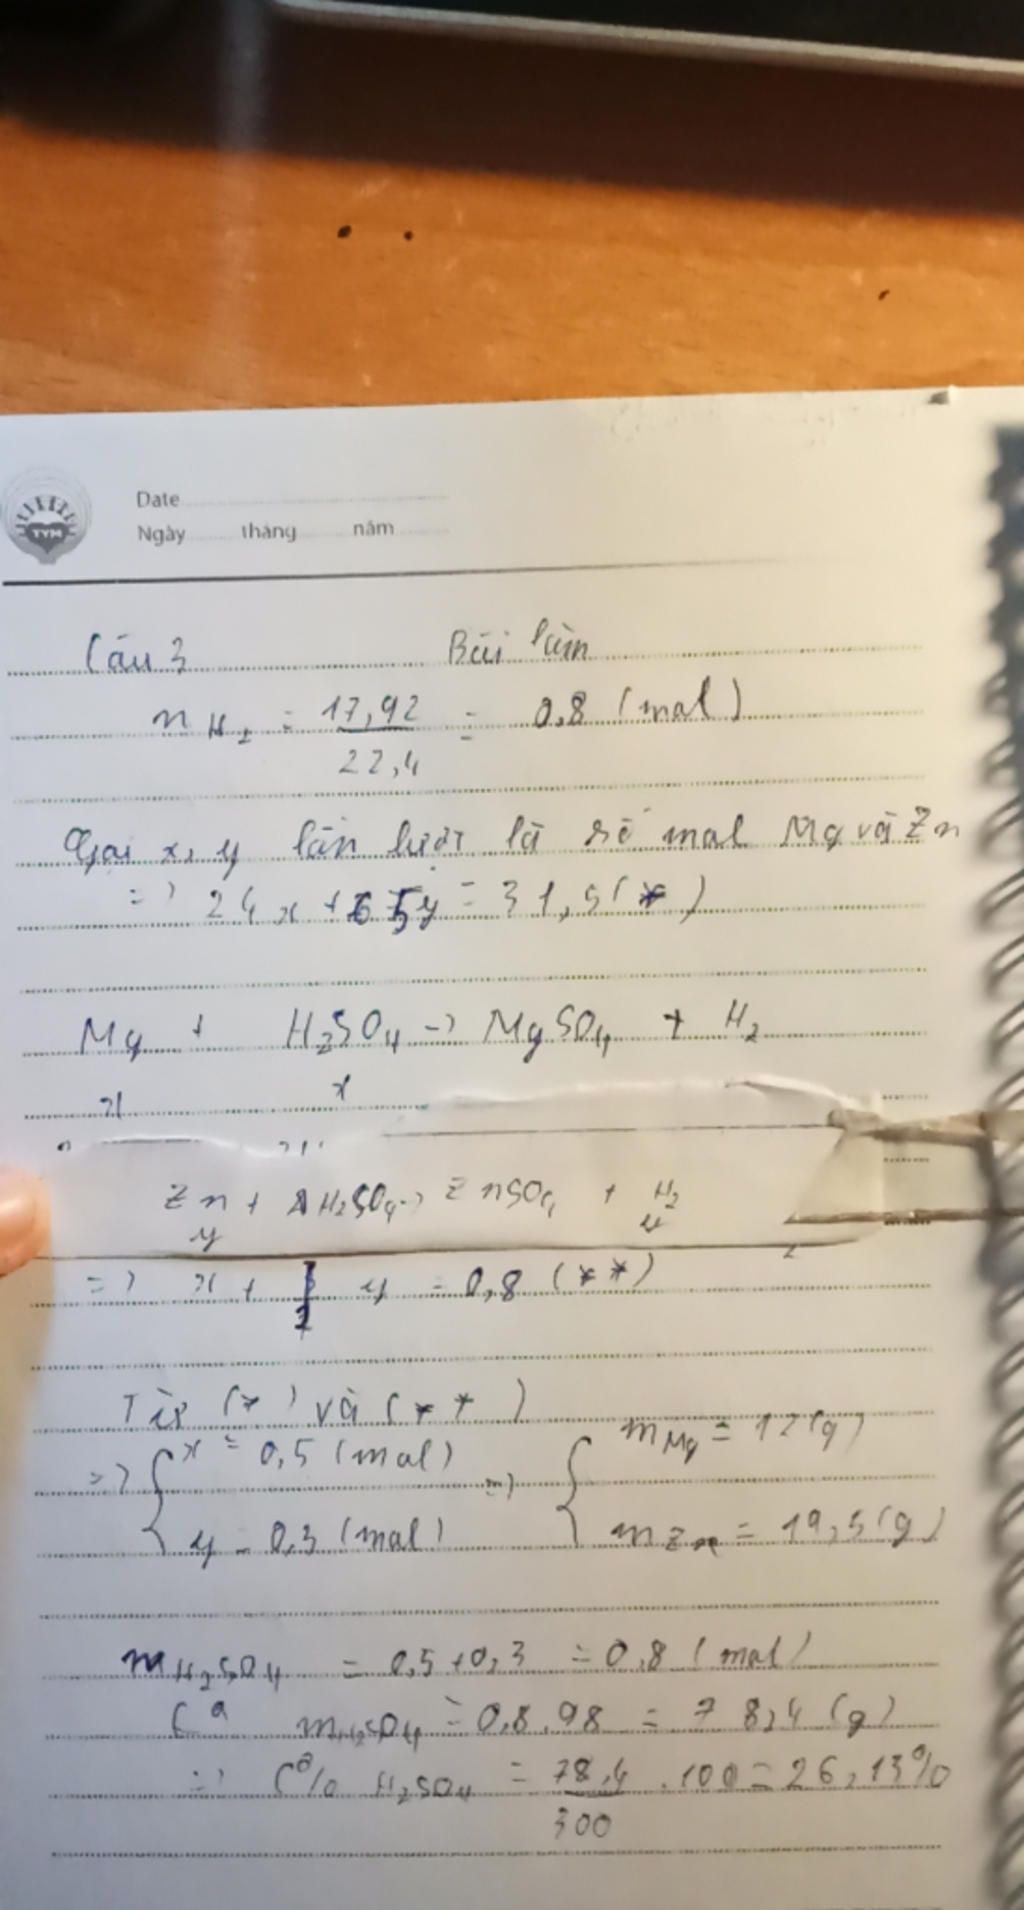 TYM
Date
Ngày tháng năm
Câu 3 Bài làm
n H2 = 17,92 / 22,4 = 0,8 (mol)
Gọi x, y lần lượt là số mol Mg và Zn
=> 24x + 65y = 31,5 (*)
Mg + H2SO4 -> MgSO4 + H2
x x
Zn + H2SO4 -> ZnSO4 + H2
y y
=> x + y = 0,8 (**)
Từ (*) và (**)
=> { x = 0,5 (mol) => { mMg = 12 (g)
y = 0,3 (mol) mZn = 19,5 (g)
mH2SO4 = 0,5 + 0,3 = 0,8 (mol)
mH2SO4 = 0,8.98 = 78,4 (g)
=> C% H2SO4 = 78,4 / 300 .100 = 26,13%